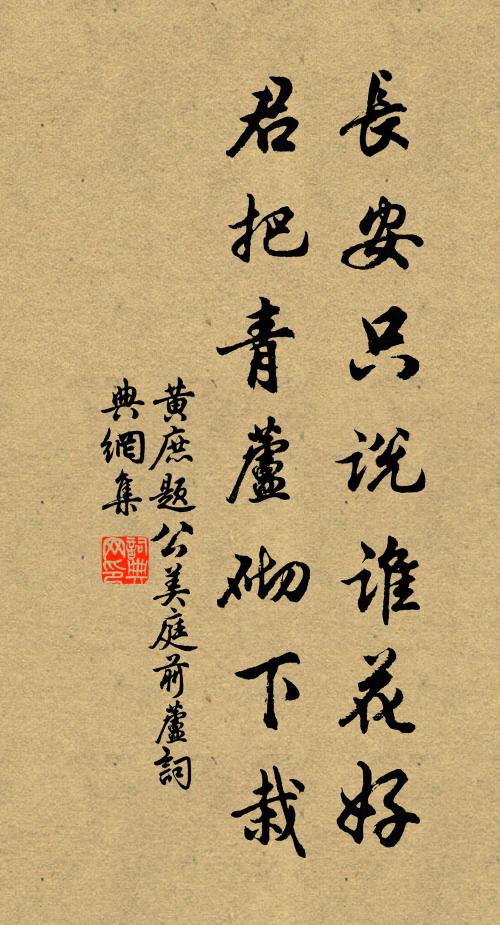 長安只説誰花好
君把青蘆砌下栽
黃庶題公美庭前蘆詞
典網集
詞典
网印